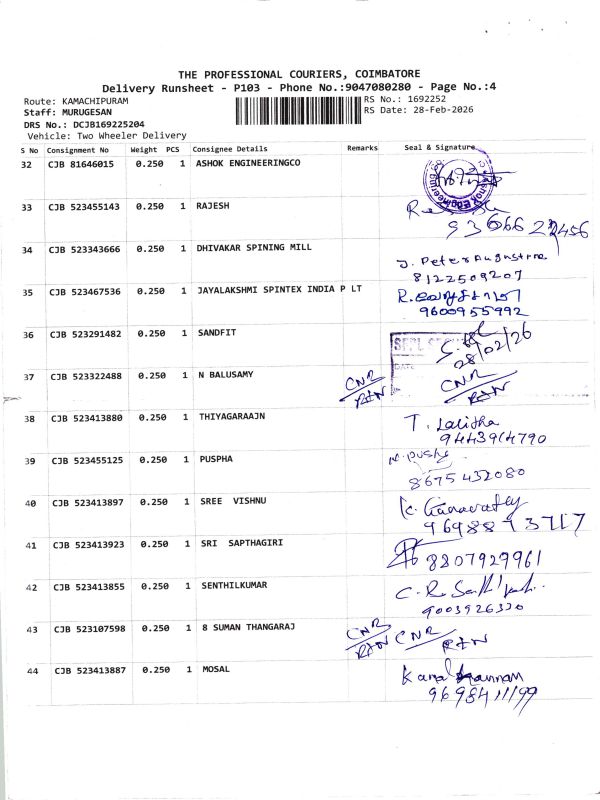 THE PROFESSIONAL COURIERS, COIMBATORE
Delivery Runsheet - P103 - Phone No.:9047080280 - Page No.:4
Route: KAMACHIPURAM
RS No.: 1692252
Staff: MURUGESAN
RS Date: 28-Feb-2026
DRS No.: DCJB169225204
Vehicle: Two Wheeler Delivery
S No Consignment No Weight PCS Consignee Details Remarks Seal & Signature
32 CJB 81646015 0.250 1 ASHOK ENGINEERINGCO
33 CJB 523455143 0.250 1 RAJESH
34 CJB 523343666 0.250 1 DHIVAKAR SPINING MILL
J. Peter
8122509207
35 CJB 523467536 0.250 1 JAYALAKSHMI SPINTEX INDIA P LT
R.
9600955992
36 CJB 523291482 0.250 1 SANDFIT
28/02/26
37 CJB 523322488 0.250 1 N BALUSAMY CNR CNR
38 CJB 523413880 0.250 1 THIYAGARAAJN T. Lalitha
9443914790
39 CJB 523455125 0.250 1 PUSPHA
8675432080
40 CJB 523413897 0.250 1 SREE VISHNU
41 CJB 523413923 0.250 1 SRI SAPTHAGIRI
8807929961
42 CJB 523413855 0.250 1 SENTHILKUMAR
9003926330
43 CJB 523107598 0.250 1 8 SUMAN THANGARAJ CNR CNR
44 CJB 523413887 0.250 1 MOSAL
9698411199